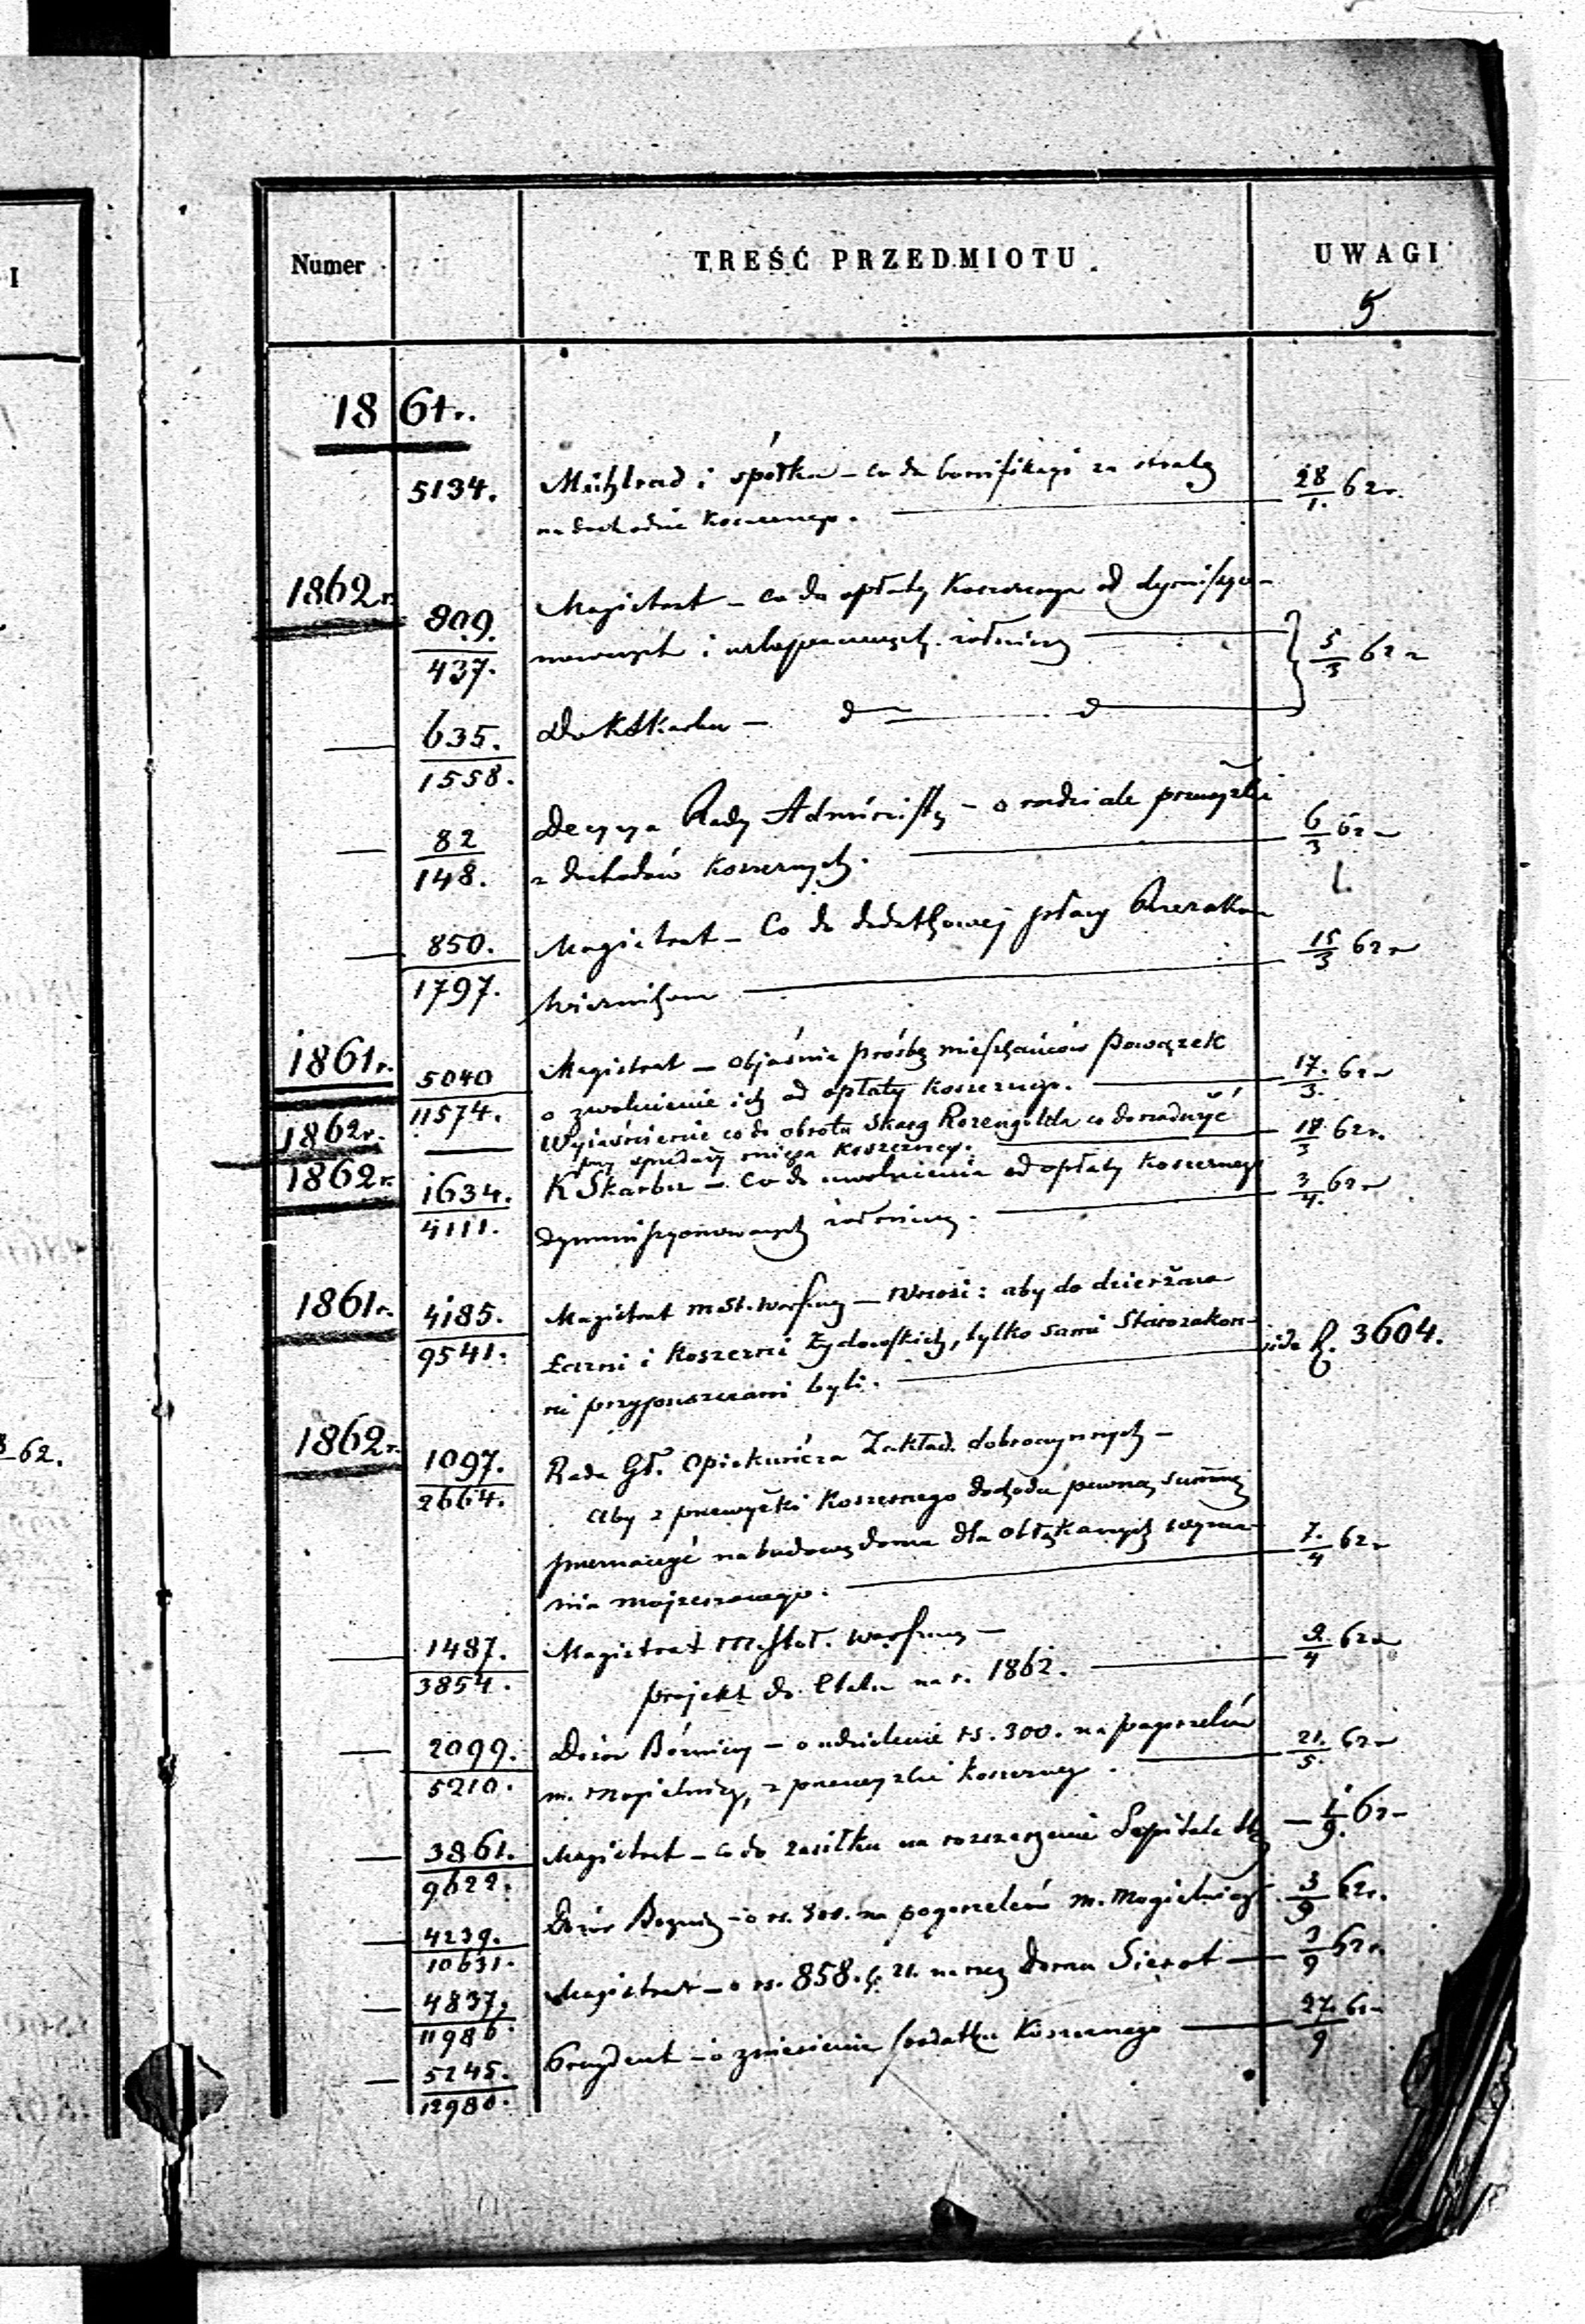 I
Numer
TREŚĆ PRZEDMIOTU
UWAGI
5
1861r.
5134. Mühlrad i spółka – co do bonifikacyi za straty 28/1. 62r.
na dochodzie koszernego.
1862r. 809./437. Magistrat – co do opłaty koszernego od dymissyo-
nowanych i urlopowanych żołnierzy 5/3 62r
— 635./1558. do K Skarbu – d d
— 82/148. Decyzya Rady Administr – o rozdziale przewyżki 6/3 62r
z dochodów koszernych.
— 850./1797. Magistrat – Co do dodatkowej płacy Rzezakom 15/3 62r
Wiernikom
1861r. 5040/11574. Magistrat – objaśnia prośbę mieszkańców Powązek 17./3. 62r
o zwolnienie ich od opłaty koszernego.
1862r. — Wyjaśnienie co do obrotu Skarg Rozengolda co do nadużyć 18/3 62r.
przy sprzedaży mięsa koszernego.
1862r. 1634./4111. K Skarbu – Co do uwolnienia od opłaty koszernego 3/4. 62r
dymmissyonowanych żołnierzy.
1861r. 4185./9541. Magistrat m St. Warszawy – Wnosi: aby do dzierżaw
Łazni i Koszerni Żydowskich, tylko sami Starozakon- vide f. 3604.
ni przypuszczani byli.
1862r. 1097./2664. Rada Gł. Opiekuńcza Zakład. dobroczynnych –
Aby z przewyżki Koszernego dochodu pewną summę
przeznaczyć na budowę domu dla obłąkanych wyzna- 7./4 62r
nia mojżeszowego.
— 1487./3854. Magistrat M. Stoł. Warszawy – 9./4 62r
projekt do Etatu na r. 1862.
— 2099./5210. Dozór Bóżniczy – o udzielenie rs. 300. na pogorzelców 21./5. 62r
m. Mogielnicy, z przewyżki koszernego.
— 3861./9622. Magistrat – co do zasiłku na rozszerzenie Szpitala 1/9. 62
— 4239./10631. Dozór Bożniczy – o rs. 300. na pogorzelców m. Mogielnicy 3/9 62r.
— 4837./11986. Magistrat – o rs. 858. k. 21. na rzecz Domu Sierot — 3/9 62r.
— 5245./12980. Prezydent – o zniesienie podatku Koszernego — 27./9 62
62.